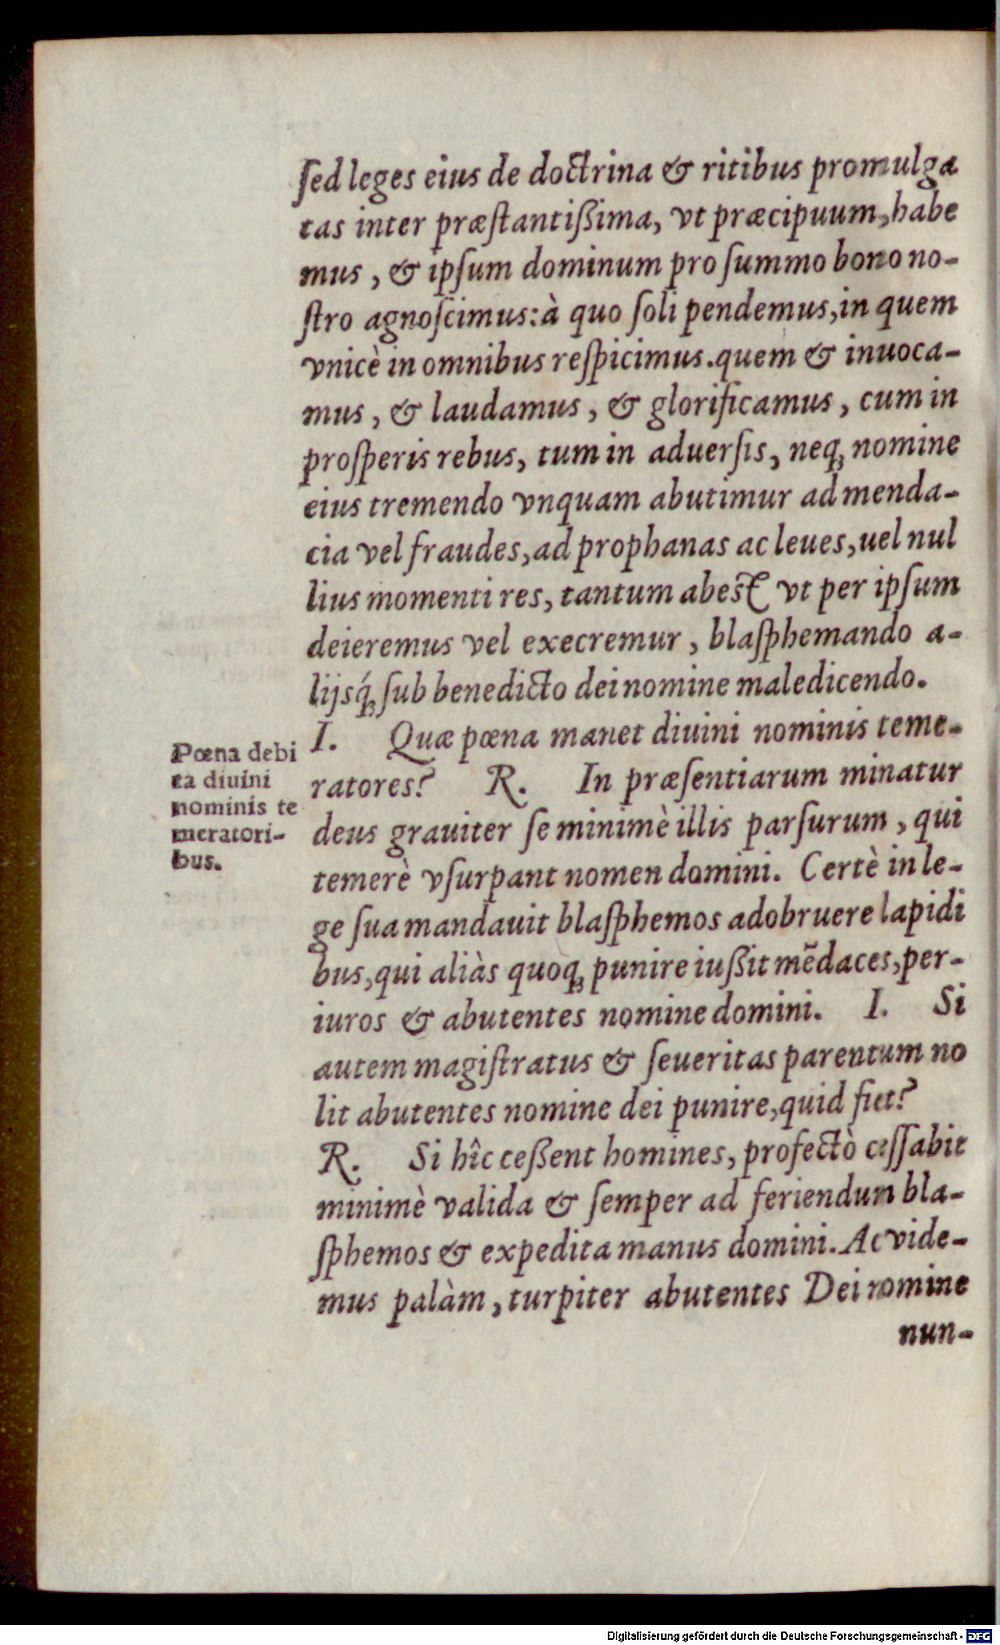 sed leges eius de doctrina & ritibus promulga
tas inter præstantißima, vt præcipuum, habe
mus, & ipsum dominum pro summo bono no-
stro agnoscimus: à quo soli pendemus, in quem
vnicè in omnibus respicimus. quem & inuoca-
mus, & laudamus, & glorificamus, cum in
prosperis rebus, tum in aduersis, neq; nomine
eius tremendo vnquam abutimur ad menda-
cia vel fraudes, ad prophanas ac leues, uel nul
lius momenti res, tantum abest vt per ipsum
deieremus vel execremur, blasphemando a-
lijsq́; sub benedicto dei nomine maledicendo.
I. Quæ pœna manet diuini nominis teme-
ratores? R. In præsentiarum minatur
deus grauiter se minimè illis parsurum, qui
temerè vsurpant nomen domini. Certè in le-
ge sua mandauit blasphemos adobruere lapidi
bus, qui aliàs quoq; punire iußit mẽdaces, per-
iuros & abutentes nomine domini. I. Si
autem magistratus & seueritas parentum no
lit abutentes nomine dei punire, quid fiet?
R. Si hîc ceßent homines, profectò cessabit
minimè valida & semper ad feriendun bla-
sphemos & expedita manus domini. Ac vide-
mus palàm, turpiter abutentes Dei nomine
nun-
Pœna debi
ta diuini
nominis te
meratori-
bus.
Digitalisierung gefördert durch die Deutsche Forschungsgemeinschaft - DFG